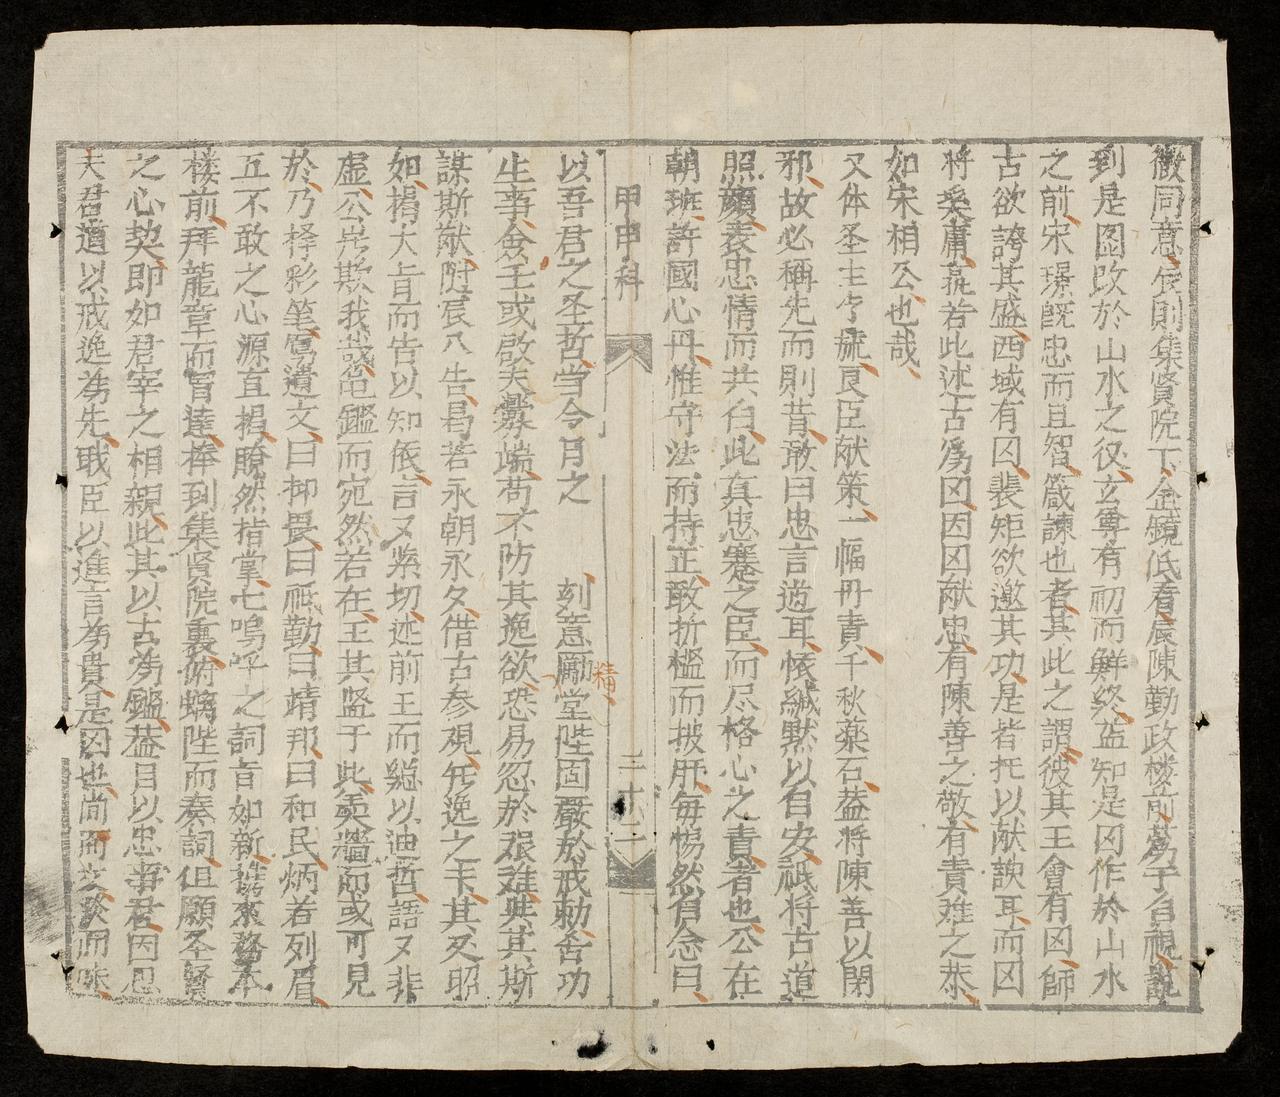 徵同意辰則集賢院下金鏡低看辰陳勤政楼前蒭于自視說
到是啚改於山水之役玄尊有初而鮮終益知是囙作於山水
之前宋璟既忠而且智箴諫也者其此之謂彼其王會有囙師
古欲誇其盛西域有囙裴矩欲邀其功是皆托以献諛耳而囙
将奚庸哉若此述古為囙因囙献忠有陳善之敬有責难之恭
如宋相公也哉
又体圣主兮求良臣献策一幅丹責千秋薬石葢将陳善以閉
邪故必稱先而則昔敢曰忠言逆耳依緘黙以自安祗将古道
照顔表忠情而共白此真忠蹇之臣而尽格心之責者也公在
朝班許國心丹惟守法而持正敢折檻而披肝毎惕然自念曰
甲申科
三十二
以吾君之圣哲当今月之 刻意勵堂陛固嚴於戒勅舍功
精
生事佥壬或啓夫釁端苟不防其逸欲恐易忽於艰难與其斯
謀斯猷附辰入告曷若永朝永夕借古参观無逸之書其文昭
如揭大旨而告以知依言又紧切述前王而継以迪哲語又非
虚公豈欺我盍鑑而宛然若在王其监于此羹墻而或可見
於乃择彩笔寫遺文曰抑畏曰祗勤曰靖邦曰和民炳若列眉
五不敢之心源直揭瞭然指掌七嗚呼之詞旨如新携來務本
楼前拜龍章而冒達捧到集賢院裏俯螭陛而奏詞但願圣賢
之心契即如君宰之相親此其以古為鑑葢目以忠事君因思
夫君道以戒逸為先哉臣以進言為貴是囙也尚而文歟而味